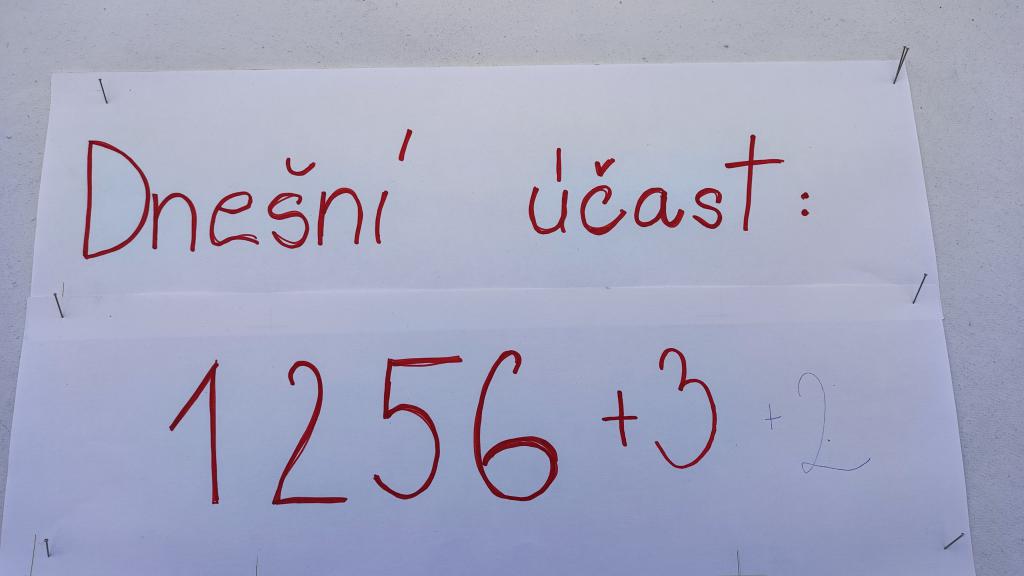 Dnešní účast:
1256 +3 +2